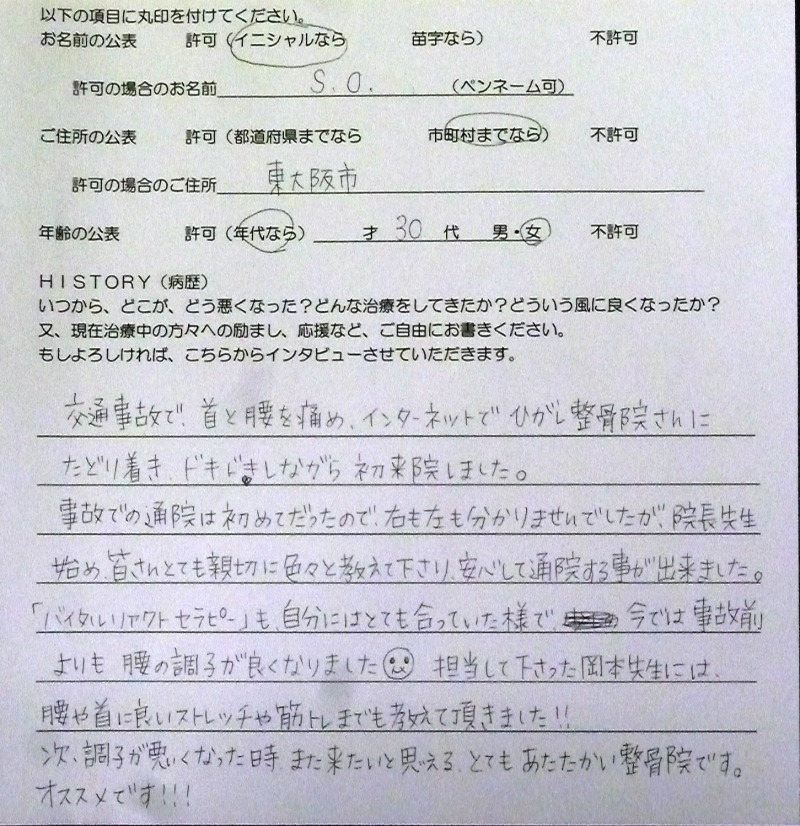 以下の項目に丸印を付けてください。
お名前の公表 許可(イニシャルなら 苗字なら) 不許可
許可の場合のお名前 S.O. (ペンネーム可)
ご住所の公表 許可(都道府県までなら 市町村までなら) 不許可
許可の場合のご住所 東大阪市
年齢の公表 許可(年代なら) 才 30 代 男・女 不許可
HISTORY(病歴)
いつから、どこが、どう悪くなった?どんな治療をしてきたか?どういう風に良くなったか?
又、現在治療中の方々への励まし、応援など、ご自由にお書きください。
もしよろしければ、こちらからインタビューさせていただきます。
交通事故で、首と腰を痛め、インターネットで ひがし整骨院さんに
たどり着き、ドキドキしながら 初来院しました。
事故での通院は初めてだったので、右も左も分かりませんでしたが、院長先生
始め、皆さんとても親切に色々と教えて下さり、安心して通院する事が出来ました。
「バイタルリアクトセラピー」も、自分にはとても合っていた様で、今では 事故前
よりも 腰の調子が良くなりました 担当して下さった岡本先生には、
腰や首に良いストレッチや筋トレまでも教えて頂きました!!
次、調子が悪くなった時、また来たいと思える、とても あたたかい整骨院です。
オススメです!!!